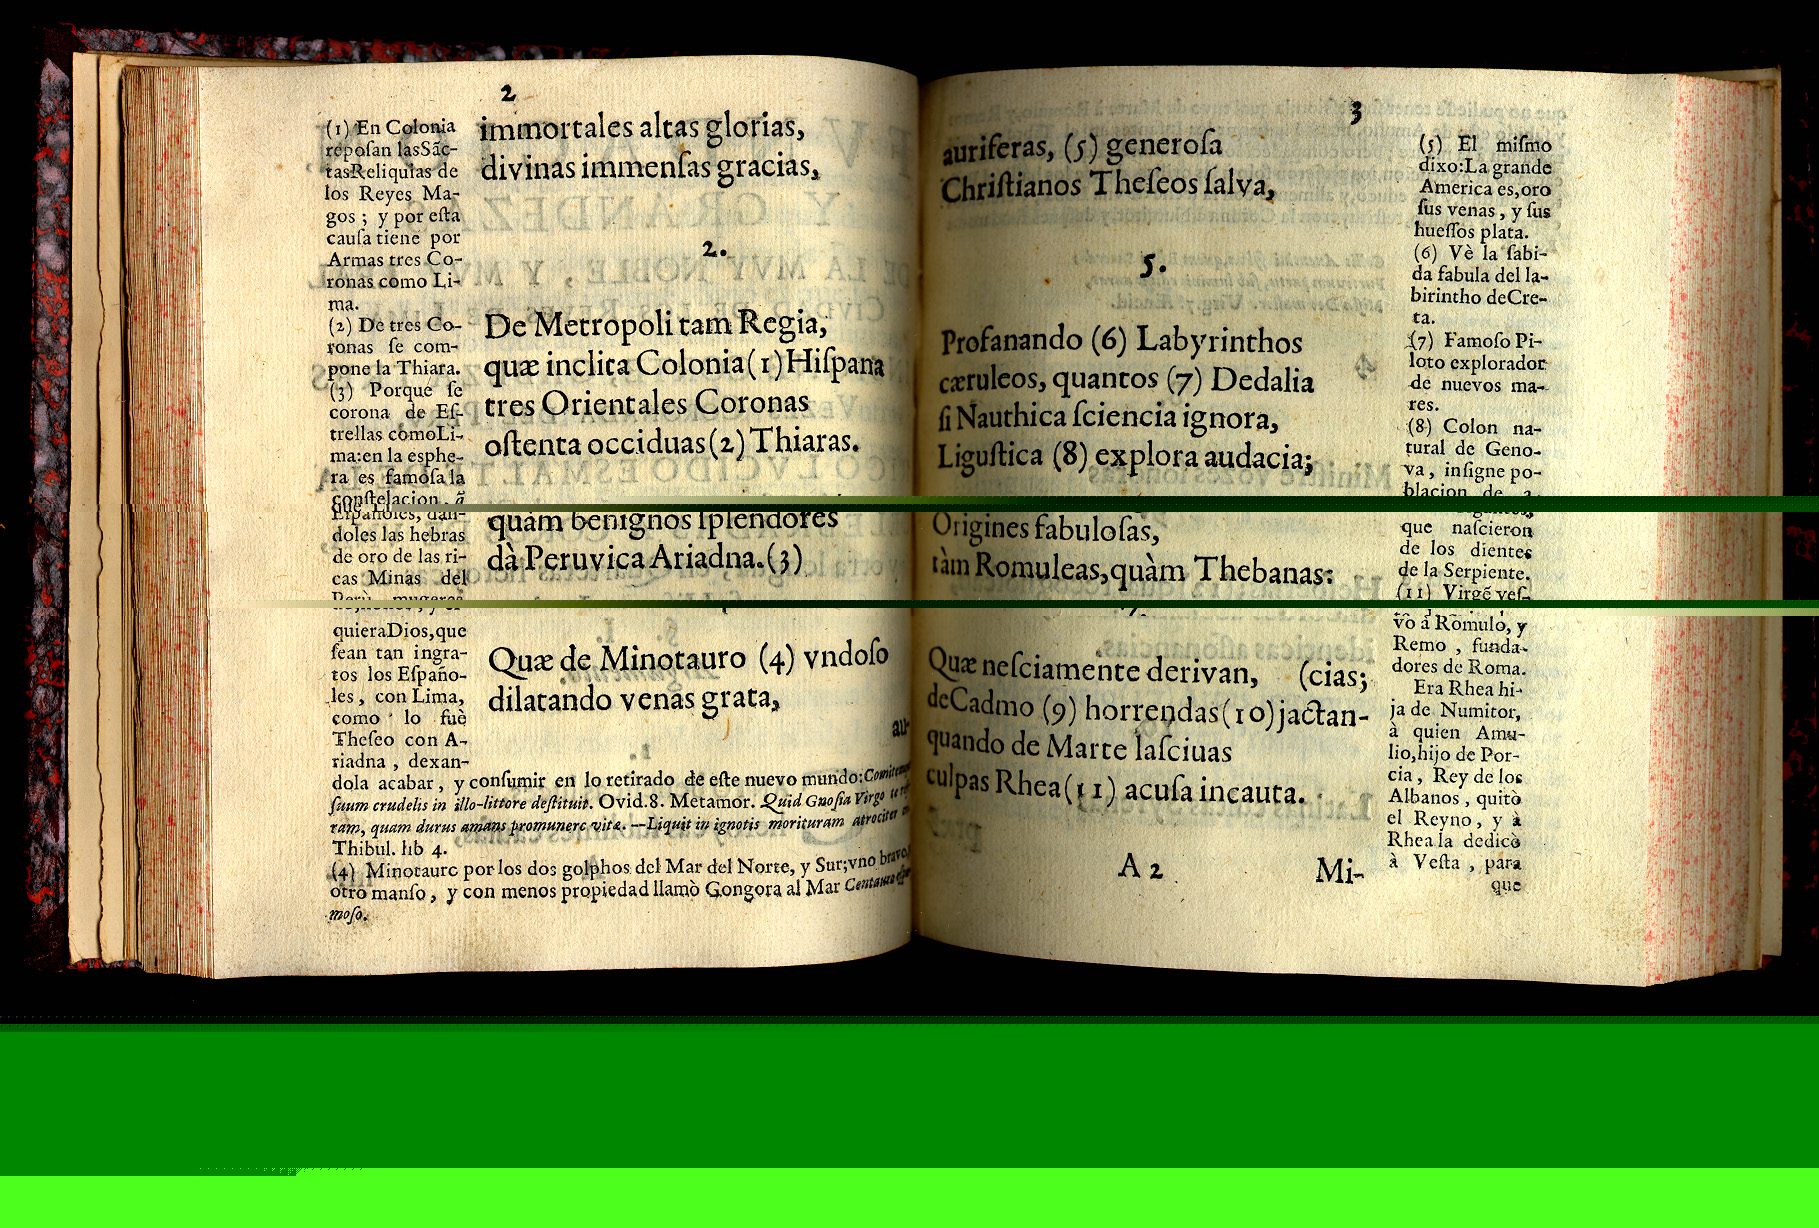 2
(1) En Colonia
reposan lasSãc-
tasReliquias de
los Reyes Ma-
gos ; y por esta
causa tiene por
Armas tres Co-
ronas como Li-
ma.
(2) De tres Co-
ronas se com-
pone la Thiara.
(3) Porque se
corona de Es-
trellas comoLi-
ma:en la esphe-
ra es famosa la
constelacion
Españoles, dan-
doles las hebras
de oro de las ri-
cas Minas del
Perù mugeres
quieraDios,que
sean tan ingra-
tos los Españo-
les, con Lima,
como lo fuè
Theseo con A-
riadna , dexan-
dola acabar, y consumir en lo retirado de este nuevo mundo:
suum crudelis in illo-littore destituit. Ovid.8. Metamor. Quid Gnosia Virgo
ram, quam durus amans promunere vitæ. —Liquit in ignotis morituram atrociter
Thibul. lib 4.
(4) Minotauro por los dos golphos del Mar del Norte, y Sur;vno bravo,
otro manso, y con menos propiedad llamò Gongora al Mar Centauro
moso.
immortales altas glorias,
divinas immensas gracias,
2.
De Metropoli tam Regia,
quæ inclita Colonia(1)Hispana
tres Orientales Coronas
ostenta occiduas(2)Thiaras.
quàm benignos splendores
dà Peruvica Ariadna.(3)
Quæ de Minotauro (4) vndoso
dilatando venas grata,
au-
3
auriferas, (5) generosa
Christianos Theseos salva,
5.
Profanando (6) Labyrinthos
cæruleos, quantos (7) Dedalia
si Nauthica sciencia ignora,
Ligustica (8) explora audacia;
Origines fabulosas,
tàm Romuleas,quàm Thebanas:
Quæ nesciamente derivan, (cias;
deCadmo (9) horrendas(10)jactan-
quando de Marte lasciuas
culpas Rhea(11) acusa incauta.
A 2 Mi-
(5) El mismo
dixo:La grande
America es,oro
sus venas, y sus
huessos plata.
(6) Vè la sabi-
da fabula del la-
birintho deCre-
ta.
(7) Famoso Pi-
loto explorador
de nuevos ma-
res.
(8) Colon na-
tural de Geno-
va, insigne po-
blacion de
que nascieron
de los dientes
de la Serpiente.
(11) Virgẽ ves-
vo à Romulo, y
Remo , funda-
dores de Roma.
Era Rhea hi-
ja de Numitor,
à quien Amu-
lio,hijo de Por-
cia, Rey de los
Albanos, quitò
el Reyno, y à
Rhea la dedicò
à Vesta , para
que